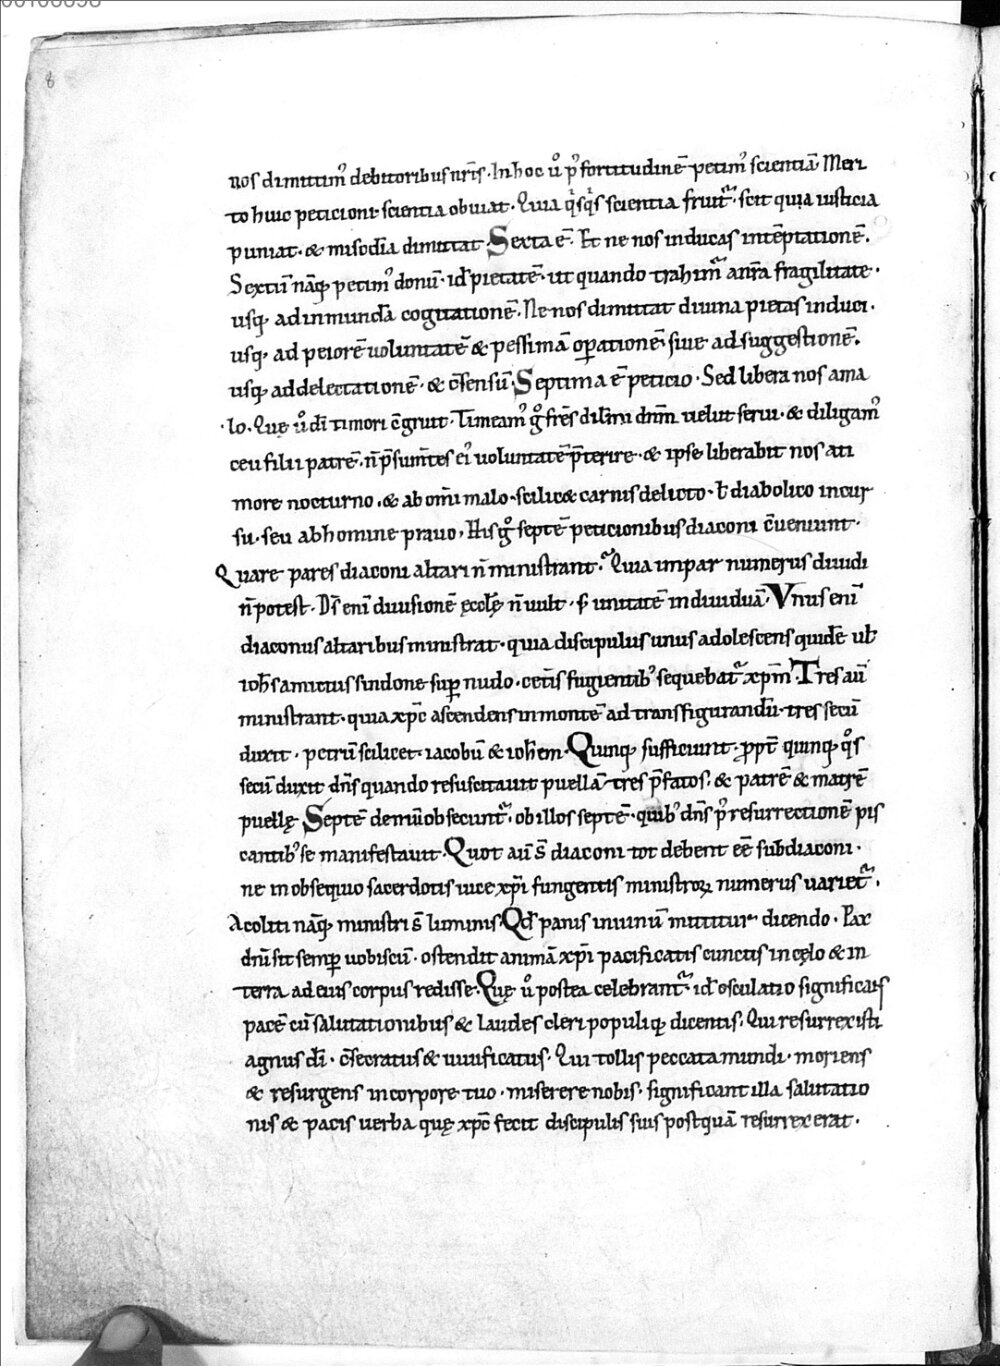 8
nos dimittimꝰ debitoribus nr̄is. In hoc ů p̱ fortitudinē petimꝰ scientiā Meri
to huic peticioni scientia obuiat. Quia qͥsqͥs scientia fruit᷑. scit quia iusticia
puniat. & mis̄c̄dia dimittat. Sexta ē. Et ne nos inducas intēptationē.
Sextū nāq; petimꝰ donū. id' pietatē. ut quando trahim᷑ anr̄a fragilitate.
usq; ad inmundā cogitationē. Ne nos dimittat diuina pietas induci.
usq; ad peiorē uoluntatē & pessimā oꝑationē. siue ad suggestionē.
usq; ad delectationē. & c̄sensū. Septima ē peticio. Sed libera nos ama
lo. Quę ů dī timori c̄gruit. Timeamꝰ g̊ fr̄es dn̄m uelut serui. & diligamꝰ
ceu filii patrē. n̄ p̄sum̄tes eiꝰ uoluntatē p̄terire. & ipse liberabit nos a ti
more nocturno. & ab om̄i malo. scilic& carnis delicto. ƚ diabolico incur
su. seu abhomine prauo. His g̊ septē peticionibus diaconi c̄ueniunt.
Quare pares diaconi altari n̄ ministrant. Quia impar numerus diuidi
n̄ potest. Ds̄ eni diuisionē ęcclę n̄ uult. s; unitatē indiuiduā. Vnus enī
diaconus altaribus ministrat. quia discipulus unus adolescens quidē ul'
ioh̄s amictus sindone suꝑ nudo. cet̄is fugientibꝰ sequebat᷑ xpm̄. Tres aū
ministrant. quia xp̄c ascendens in montē ad transfigurandū. tres secū
duxit. petrū scilicet. iacobū & ioh̄em. Quinq; sufficiunt. ꝓpt̄ quinq; q̊s
secū duxit dn̄s quando resuscitauit puellā tres p̄fatos. & patrē & matrē
puellę. Septē demū obsecunt᷑. ob illos septē. quibꝰ dn̄s pꝰ resurrectionē pis
cantibꝰ se manifestauit. Quot aū s̄ diaconi tot debent eē subdiaconi.
ne in obsequio sacerdotis uice xp̄i fungentis ministroꝝ numerus uariet᷑.
Acoliti nāq; ministri s̄ luminis. Qd' panis in uinū mittitur dicendo. Pax
dn̄i sit semꝑ uobiscū. ostendit animā xp̄i pacificatis cunctis in cęlo & in
terra ad eius corpus redisse. Quę ů postea celebrant᷑. id' osculatio significans
pacē cū salutationibus & laudes cleri populiq; dicentis. Qui resurrexisti
agnus dī. c̄secratus & uiuificatus. Qui tollis peccata mundi. moriens
& resurgens in corpore tuo. miserere nobis. significant illa salutatio
nis & pacis uerba quę xp̄c fecit discipulis suis postquā resurrexerat.